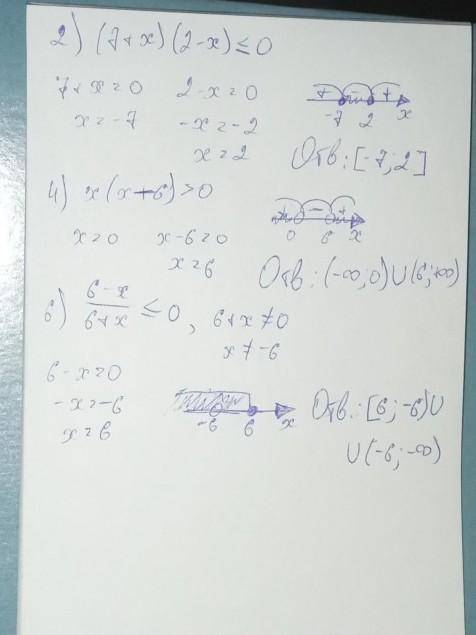 2) (7+x)(2-x)≤0
7+x=0 2-x=0 + - +
x=-7 -x=-2 -7 2 x
x=2 Отв: [-7;2]
4) x(x-6)>0 + - +
x=0 x-6=0 0 6 x
x=6 Отв: (-∞;0)U(6;+∞)
6) 6-x/6+x ≤0, 6+x≠0
x≠-6
6-x=0
-x=-6 -6 6 x Отв: [6;-6)U
x=6 U(-6;-∞)